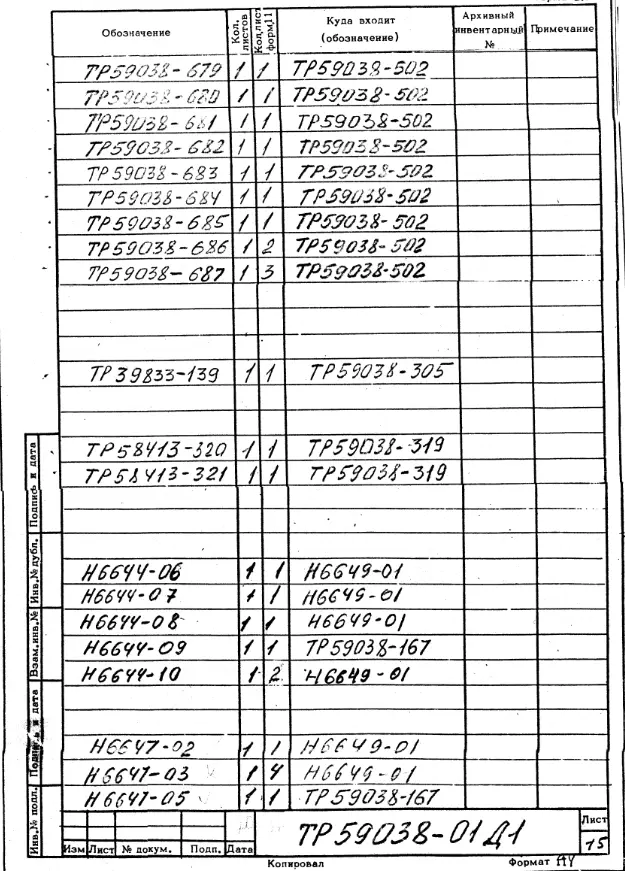 Обозначение Кол. листов Кол.лист форм.11 Куда входит (обозначение) Архивный инвентарный № Примечание
ТР59038-679 1 1 ТР59038-502
ТР59038-680 1 1 ТР59038-502
ТР59038-681 1 1 ТР59038-502
ТР59038-682 1 1 ТР59038-502
ТР59038-683 1 1 ТР59038-502
ТР59038-684 1 1 ТР59038-502
ТР59038-685 1 1 ТР59038-502
ТР59038-686 1 2 ТР59038-502
ТР59038-687 1 3 ТР59038-502
ТР39833-139 1 1 ТР59038-305
ТР58413-320 1 1 ТР59038-319
ТР58413-321 1 1 ТР59038-319
Н6644-06 1 1 Н6649-01
Н6644-07 1 1 Н6649-01
Н6644-08 1 1 Н6649-01
Н6644-09 1 1 ТР59038-167
Н6644-10 1 2 Н6649-01
Н6647-02 1 1 Н6649-01
Н6647-03 1 4 Н6649-01
Н6647-05 1 1 ТР59038-167
Инв.№ подл. Подпись и дата Взам.инв.№ Инв.№ дубл. Подпись и дата
Изм Лист № докум. Подп. Дата
ТР59038-01Д1
Лист
15
Копировал Формат А4